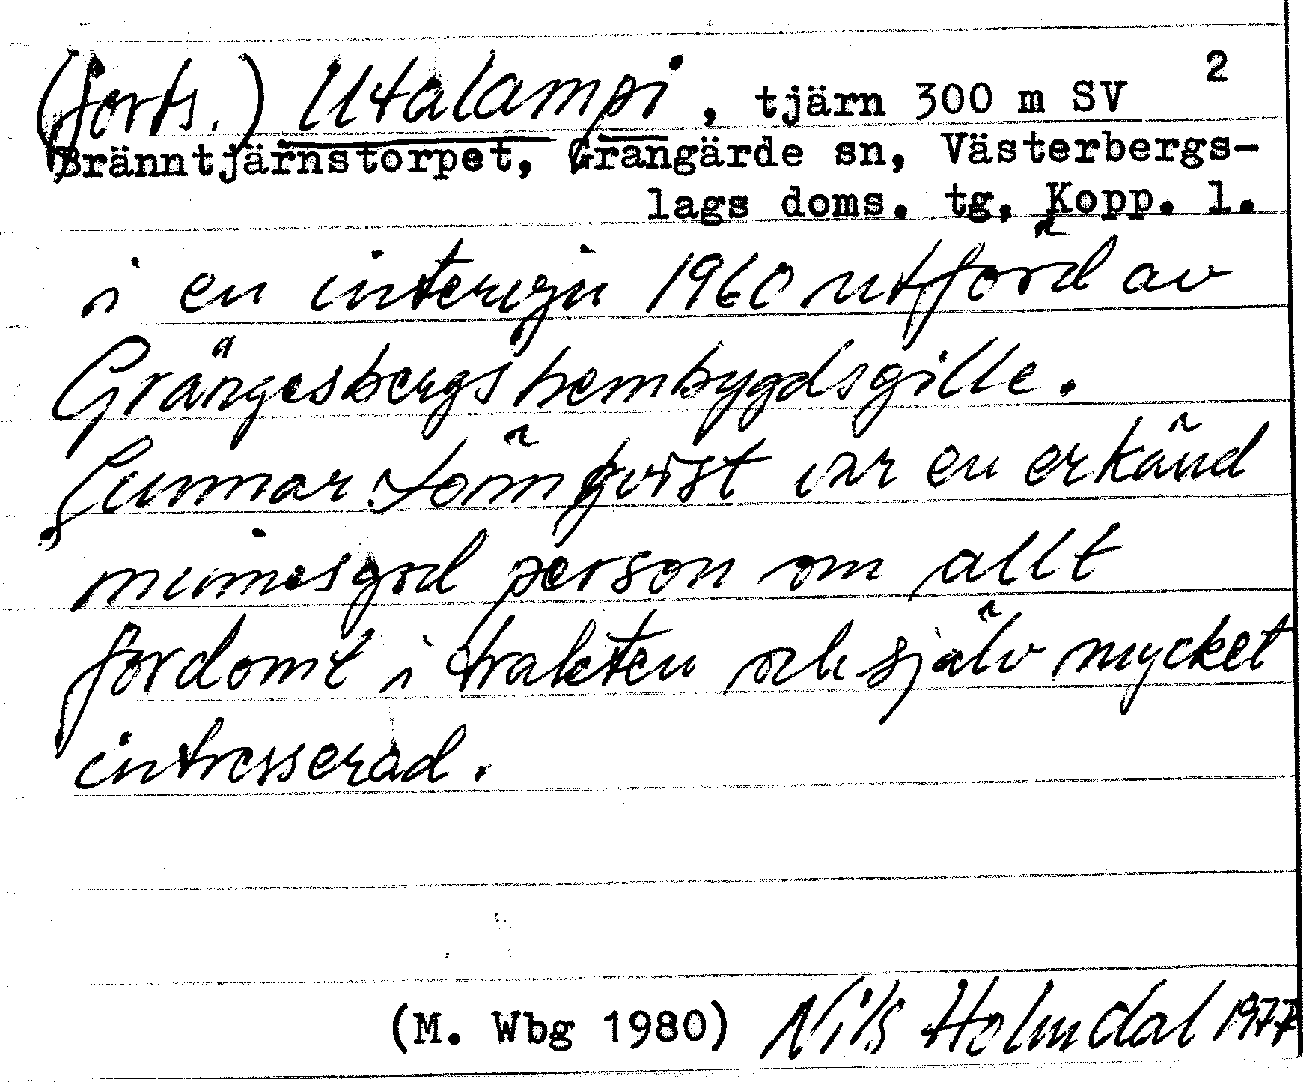 2
(forts.) Utalampi, tjärn 300 m SV
Bränntjärnstorpet, Grangärde sn, Västerbergs-
lags doms. tg, Kopp. l.
i en intervju 1960 utförd av
Grängesbergs hembygdsgille.
Gunnar Lörnqvist var en erkänd
minnesgod person om allt
fordomt i trakten och själv mycket
intresserad.
(M. Wbg 1980) Nils Holmdal 1977